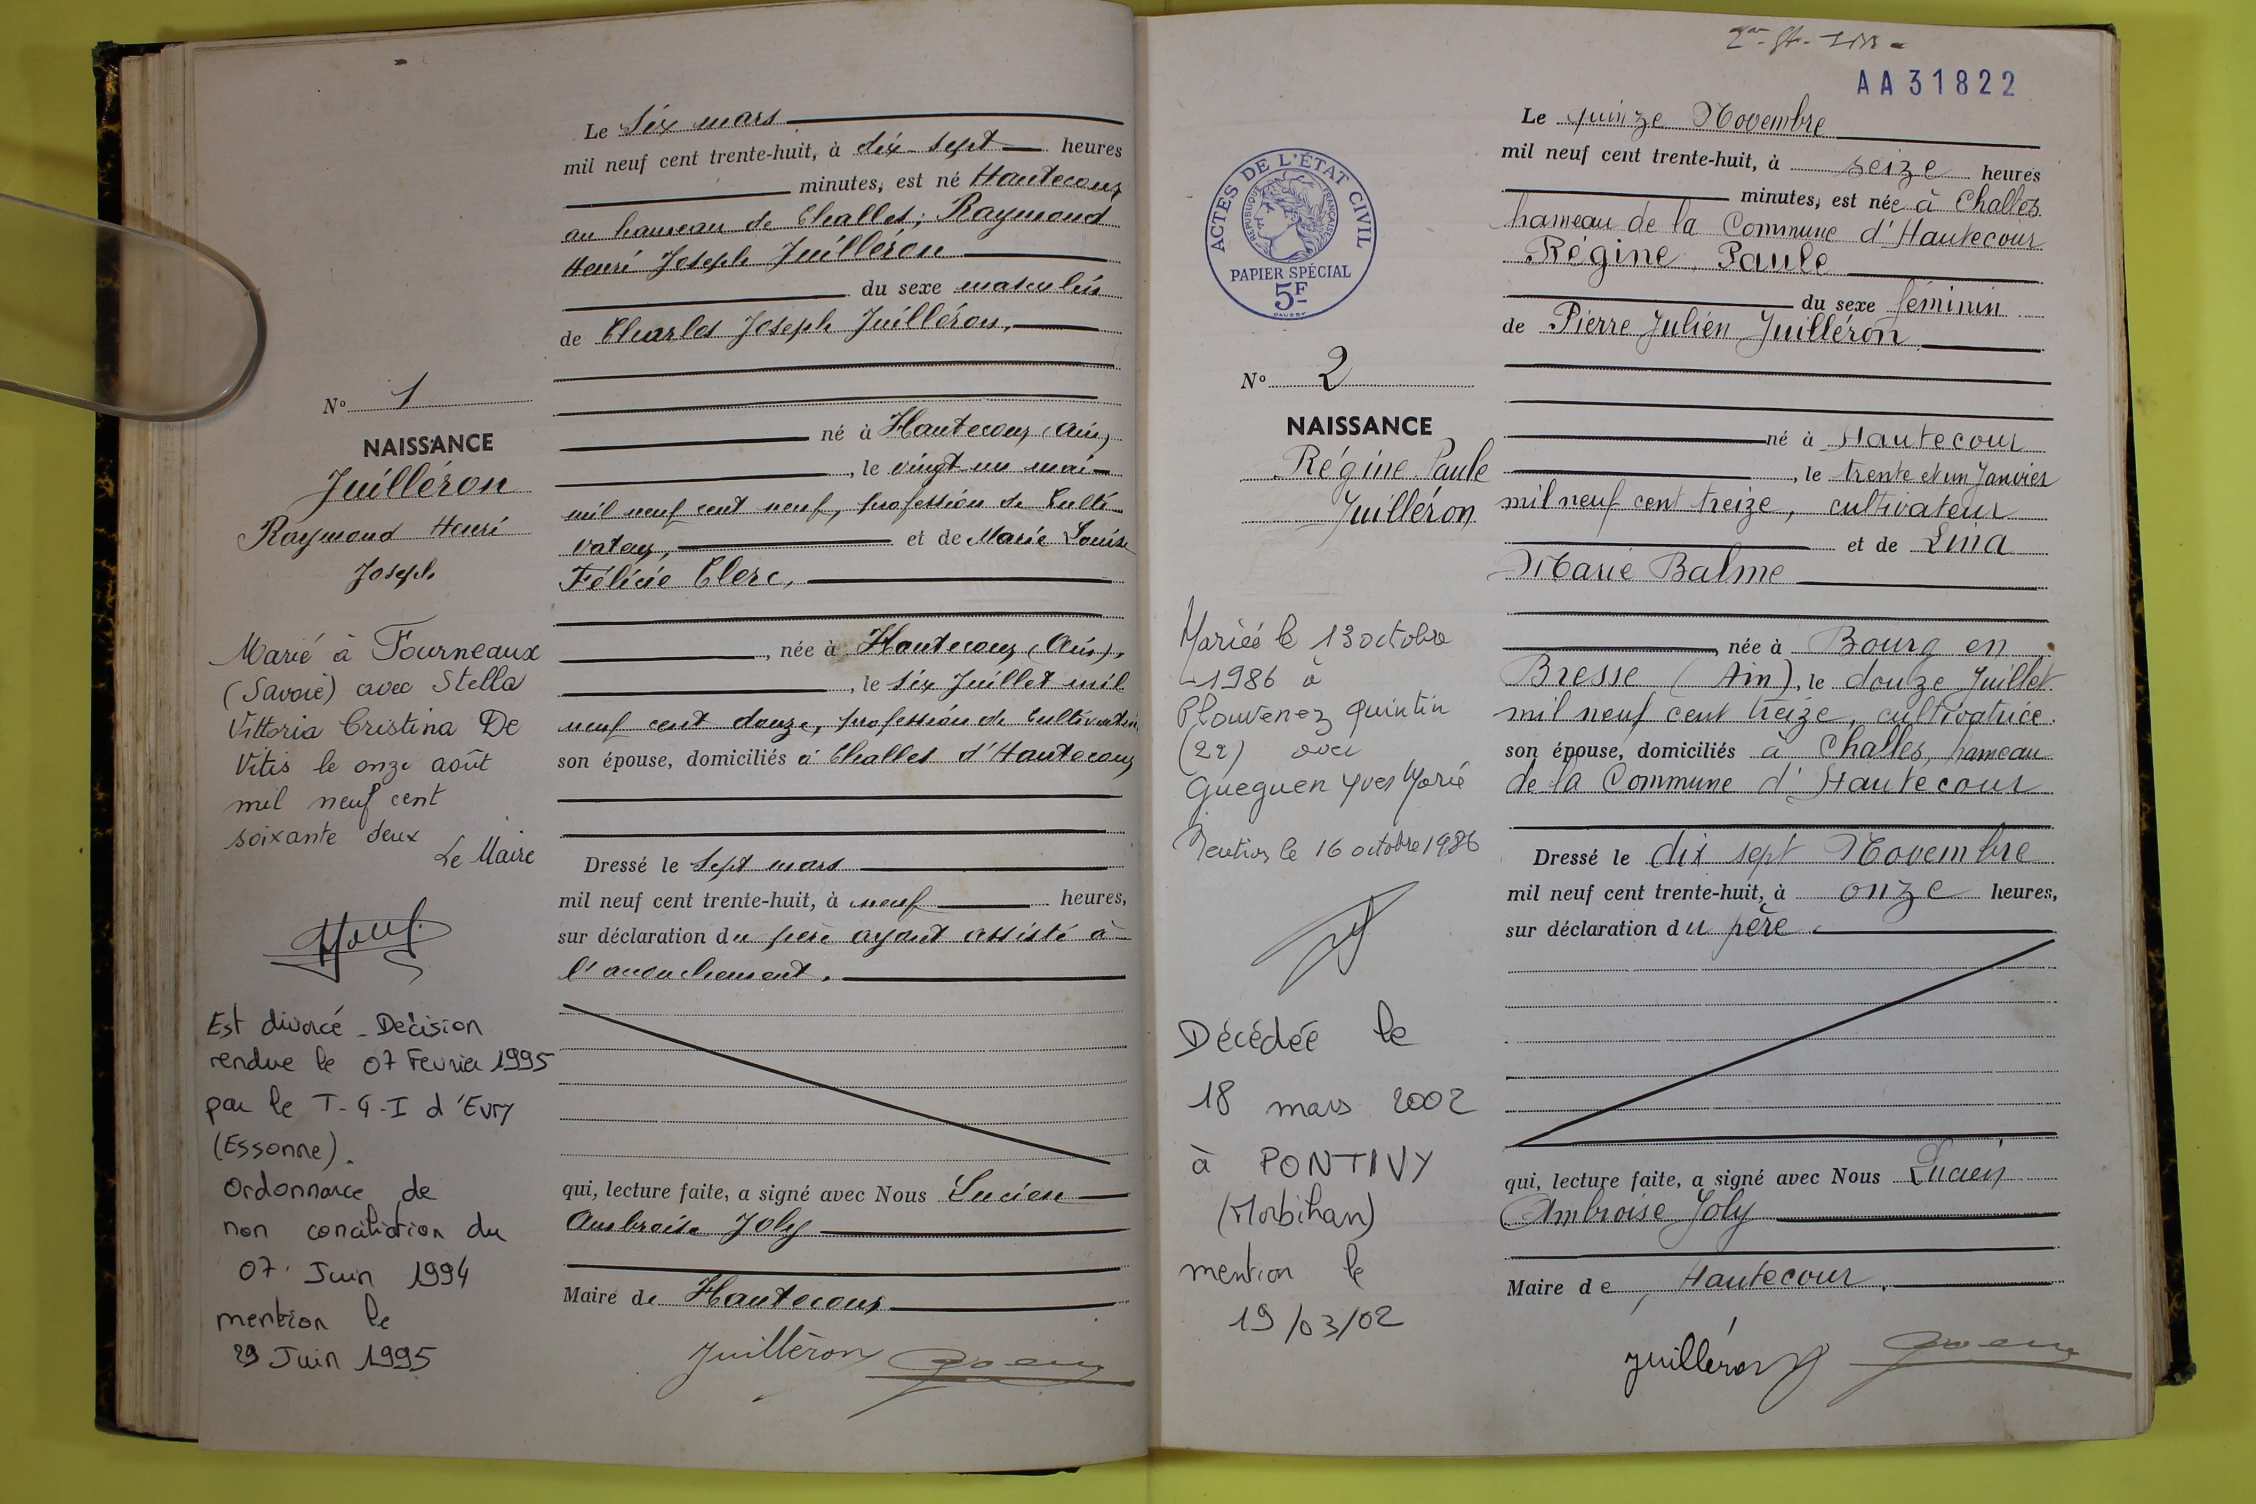 Le Six mars
mil neuf cent trente-huit, à dix-sept heures
minutes, est né Hautecour
au hameau de Challes, Raymond
Henri Joseph Juilléron
du sexe masculin
de Charles Joseph Juilléron,
né à Hautecour (Ain)
, le vingt un mai
mil neuf cent neuf, profession de Culti-
vateur, et de Marie Louise
Félicie Clerc,
, née à Hautecour (Ain),
, le six Juillet mil
neuf cent douze, profession de Cultivatrice
son épouse, domiciliés à Challes d'Hautecour
Dressé le Sept mars
mil neuf cent trente-huit, à neuf heures,
sur déclaration du père ayant assisté à
l'accouchement.
qui, lecture faite, a signé avec Nous Lucien
Ambroise Joly
Maire de Hautecour
Juilléron
N° 1
NAISSANCE
Juilléron
Raymond Henri
Joseph
Marié à Fourneaux
(Savoie) avec Stella
Vittoria Cristina De
Vitis le onze août
mil neuf cent
soixante deux
Le Maire
Est divorcé - Décision
rendue le 07 Fevrier 1995
par le T-G-I d'Evry
(Essonne).
Ordonnance de
non conciliation du
07 Juin 1994
mention le
29 Juin 1995
AA31822
ACTES DE L'ÉTAT CIVIL
RÉPUBLIQUE FRANÇAISE
PAPIER SPÉCIAL
5F
N° 2
NAISSANCE
Régine Paule
Juilléron
Mariée le 13 octobre
1986 à
Plouvenez Quintin
(22) avec
Gueguen Yves Marie
Mention le 16 octobre 1986
Décédée le
18 mars 2002
à PONTIVY
(Morbihan)
mention le
19/03/02
Le quinze Novembre
mil neuf cent trente-huit, à seize heures
minutes, est née à Challes
hameau de la Commune d'Hautecour
Régine, Paule
du sexe féminin
de Pierre Julien Juilléron
né à Hautecour
, le trente et un Janvier
mil neuf cent treize, cultivateur
et de Lina
Marie Balme
, née à Bourg en
Bresse (Ain), le douze Juillet
mil neuf cent treize, cultivatrice.
son épouse, domiciliés à Challes, hameau
de la Commune d'Hautecour
Dressé le dix sept Novembre
mil neuf cent trente-huit, à onze heures,
sur déclaration du père.
qui, lecture faite, a signé avec Nous Lucien
Ambroise Joly
Maire de Hautecour.
Juilléron